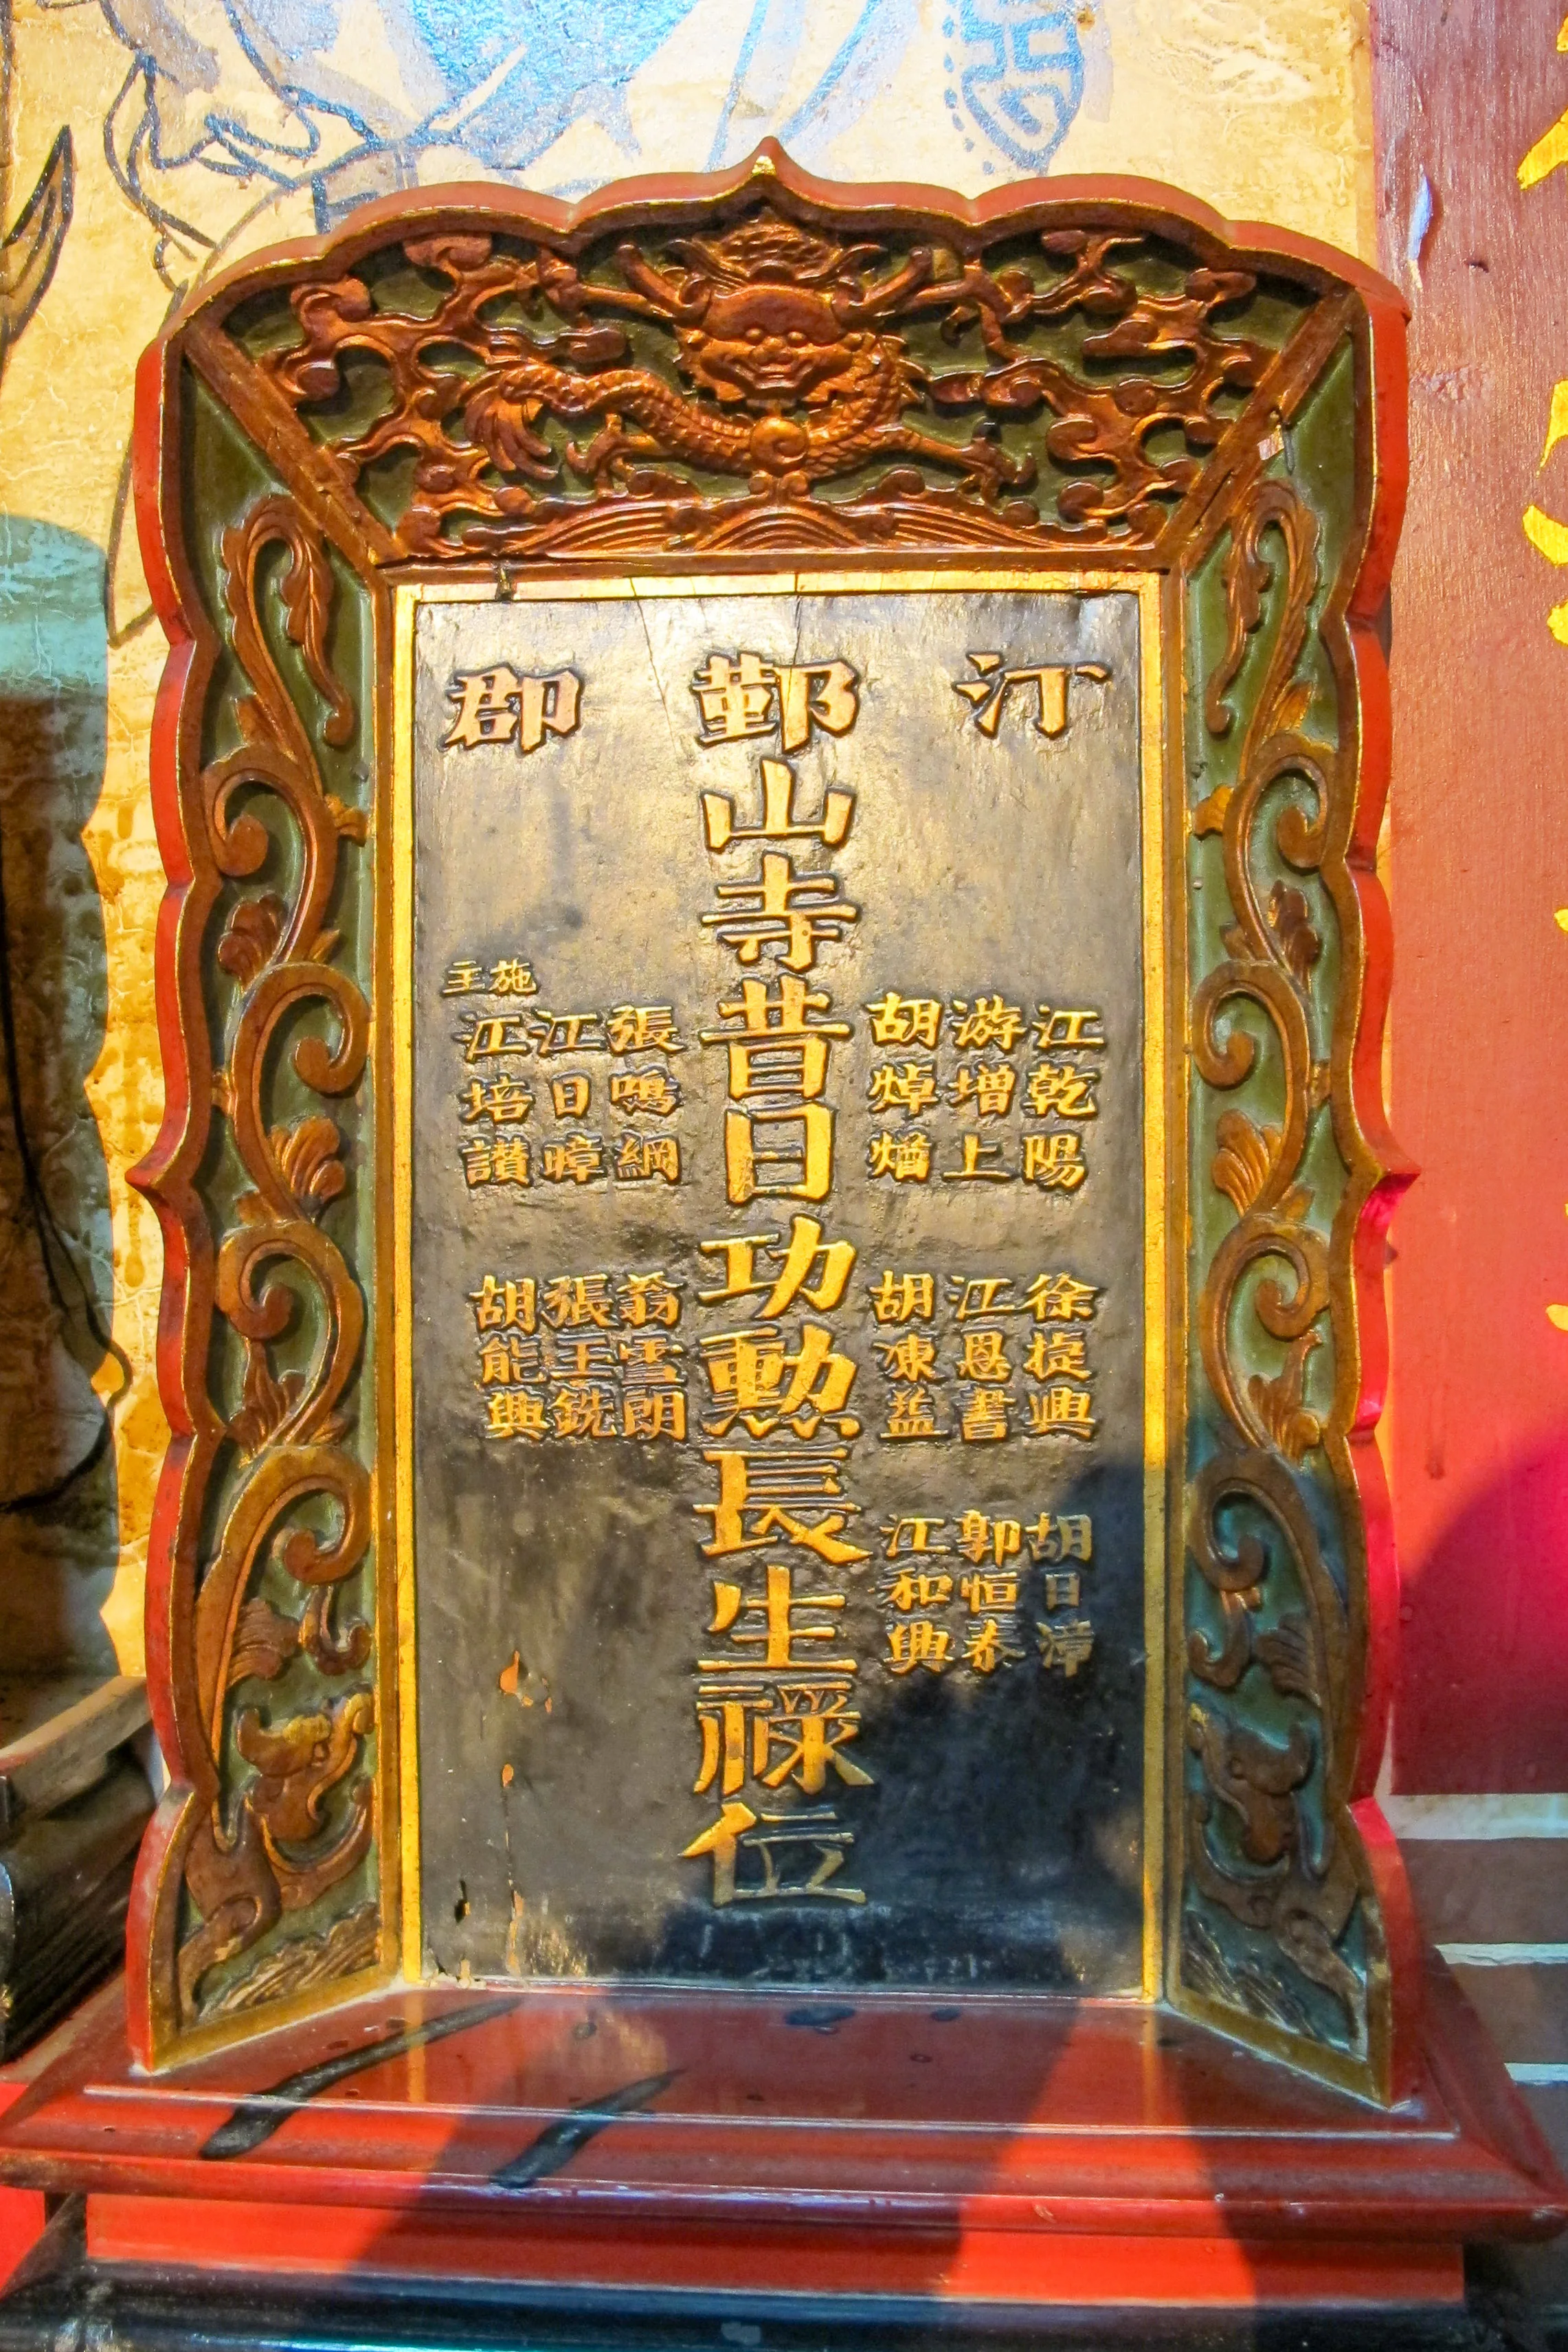 汀郡
江乾陽 徐捷興 胡日漳
游增上 江恩書 郭恒泰
胡焯熷 胡凍益 江和興
鄞山寺昔日功勲長生祿位
張鳴綱 翁雪朗
江日暲 張王銑
施主
江培讃 胡能興